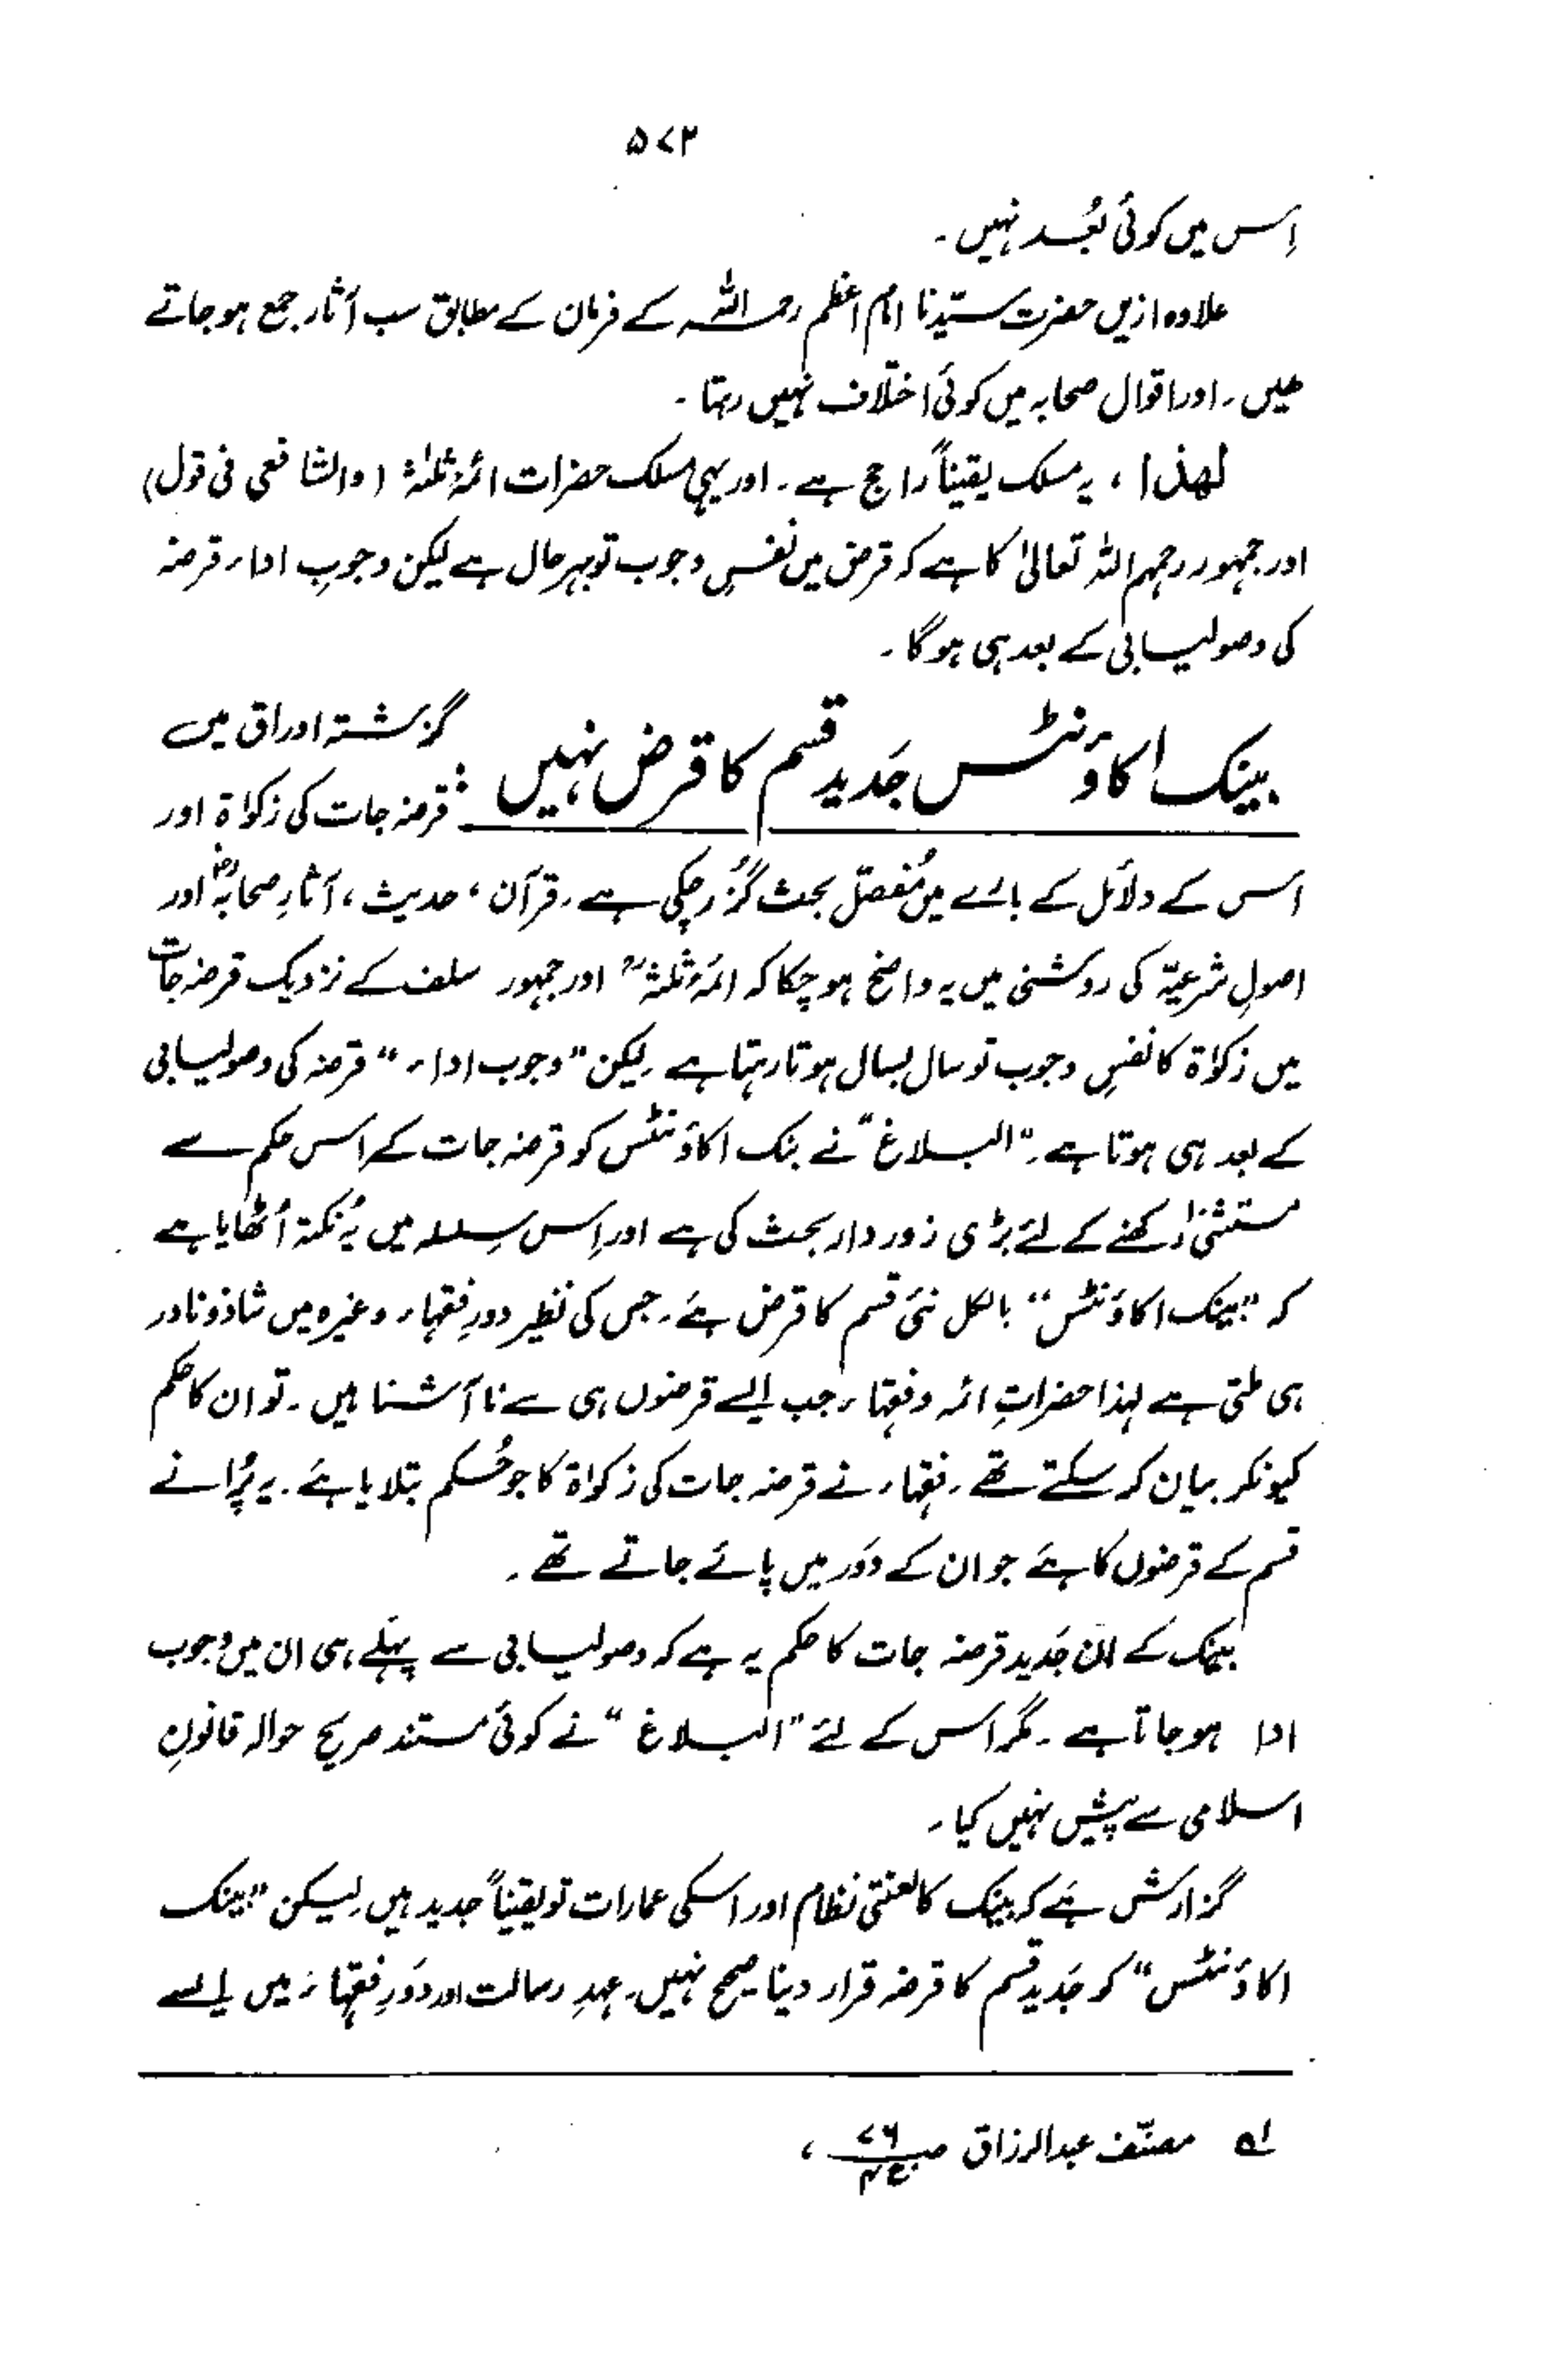 ۵۷۳
اِس میں کوئی بُعد نہیں۔
علاوہ ازیں حضرت سیّدنا امام اعظم رحمہ اللہ کے فرمان کے مطابق سب آثار جمع ہو جاتے
ھیں۔ اور اقوال صحابہ میں کوئی اختلاف نہیں رہتا۔
لھٰذا، یہ مسلک یقیناً راجح ہے۔ اور یہی مسلک حضرات ائمۂ ثلٰثہ (والشافعی فی قول)
اور جمہور رحمہم اللہ تعالیٰ کا ہے کہ قرض میں نفسِ وجوب تو بہر حال ہے لیکن وجوبِ اداء قرضہ
کی وصولیابی کے بعد ہی ہو گا۔
بینک اکاؤنٹس جَدید قسم کا قرض نہیں : گزشتہ اوراق میں
قرضہ جات کی زکوٰۃ اور
اس کے دلائل کے بارے میں مُفصّل بحث گزُر چکی ہے۔ قرآن، حدیث، آثارِ صحابہؓ اور
اصولِ شرعیّہ کی روشنی میں یہ واضح ہو چکا کہ ائمۂ ثلٰثہؒ اور جمہور سلف کے نزدیک قرضہ جات
میں زکوٰۃ کا نفسِ وجوب تو سال بسال ہوتا رہتا ہے لیکن "وجوب اداء" قرضہ کی وصولیابی
کے بعد ہی ہوتا ہے۔ "البلاغ" نے بنک اکاؤنٹس کو قرضہ جات کے اس حکم سے
مستثنیٰ رکھنے کے لئے بڑی زور دار بحث کی ہے اور اِس سِلسلہ میں یہ نُکتہ اُٹھایا ہے
کہ "بینک اکاؤنٹس" بالکل نئی قسم کا قرض ہے۔ جس کی نظیر دورِ فقہاء وغیرہ میں شاذ و نادر
ہی ملتی ہے لہذا حضراتِ ائمہ و فقہاء جب ایسے قرضوں ہی سے نا آشنا ہیں۔ تو ان کا حکم
کیونکر بیان کر سکتے تھے۔ فقہاء نے قرضہ جات کی زکوٰۃ کا جو حُکم بتلایا ہے۔ یہ پُرانے
قسم کے قرضوں کا ہے جو ان کے دَور میں پائے جاتے تھے۔
بینک کے ان جَدید قرضہ جات کا حکم یہ ہے کہ وصولیابی سے پہلے ہی ان میں وجوب
ادا ہو جاتا ہے۔ مگر اس کے لئے "البلاغ" نے کوئی مستند صریح حوالہ قانونِ
اسلامی سے پیش نہیں کیا۔
گزارش ہے کہ بینک کا لعنتی نظام اور اسکی عمارات تو یقیناً جدید ہیں لیکن "بینک
اکاؤنٹس" کو جَدید قسم کا قرضہ قرار دینا صحیح نہیں۔ عہدِ رسالت اور دَورِ فقہاء میں ایسے
لہ مصنّف عبدالرزاق ص ۷۶ ج ۴،